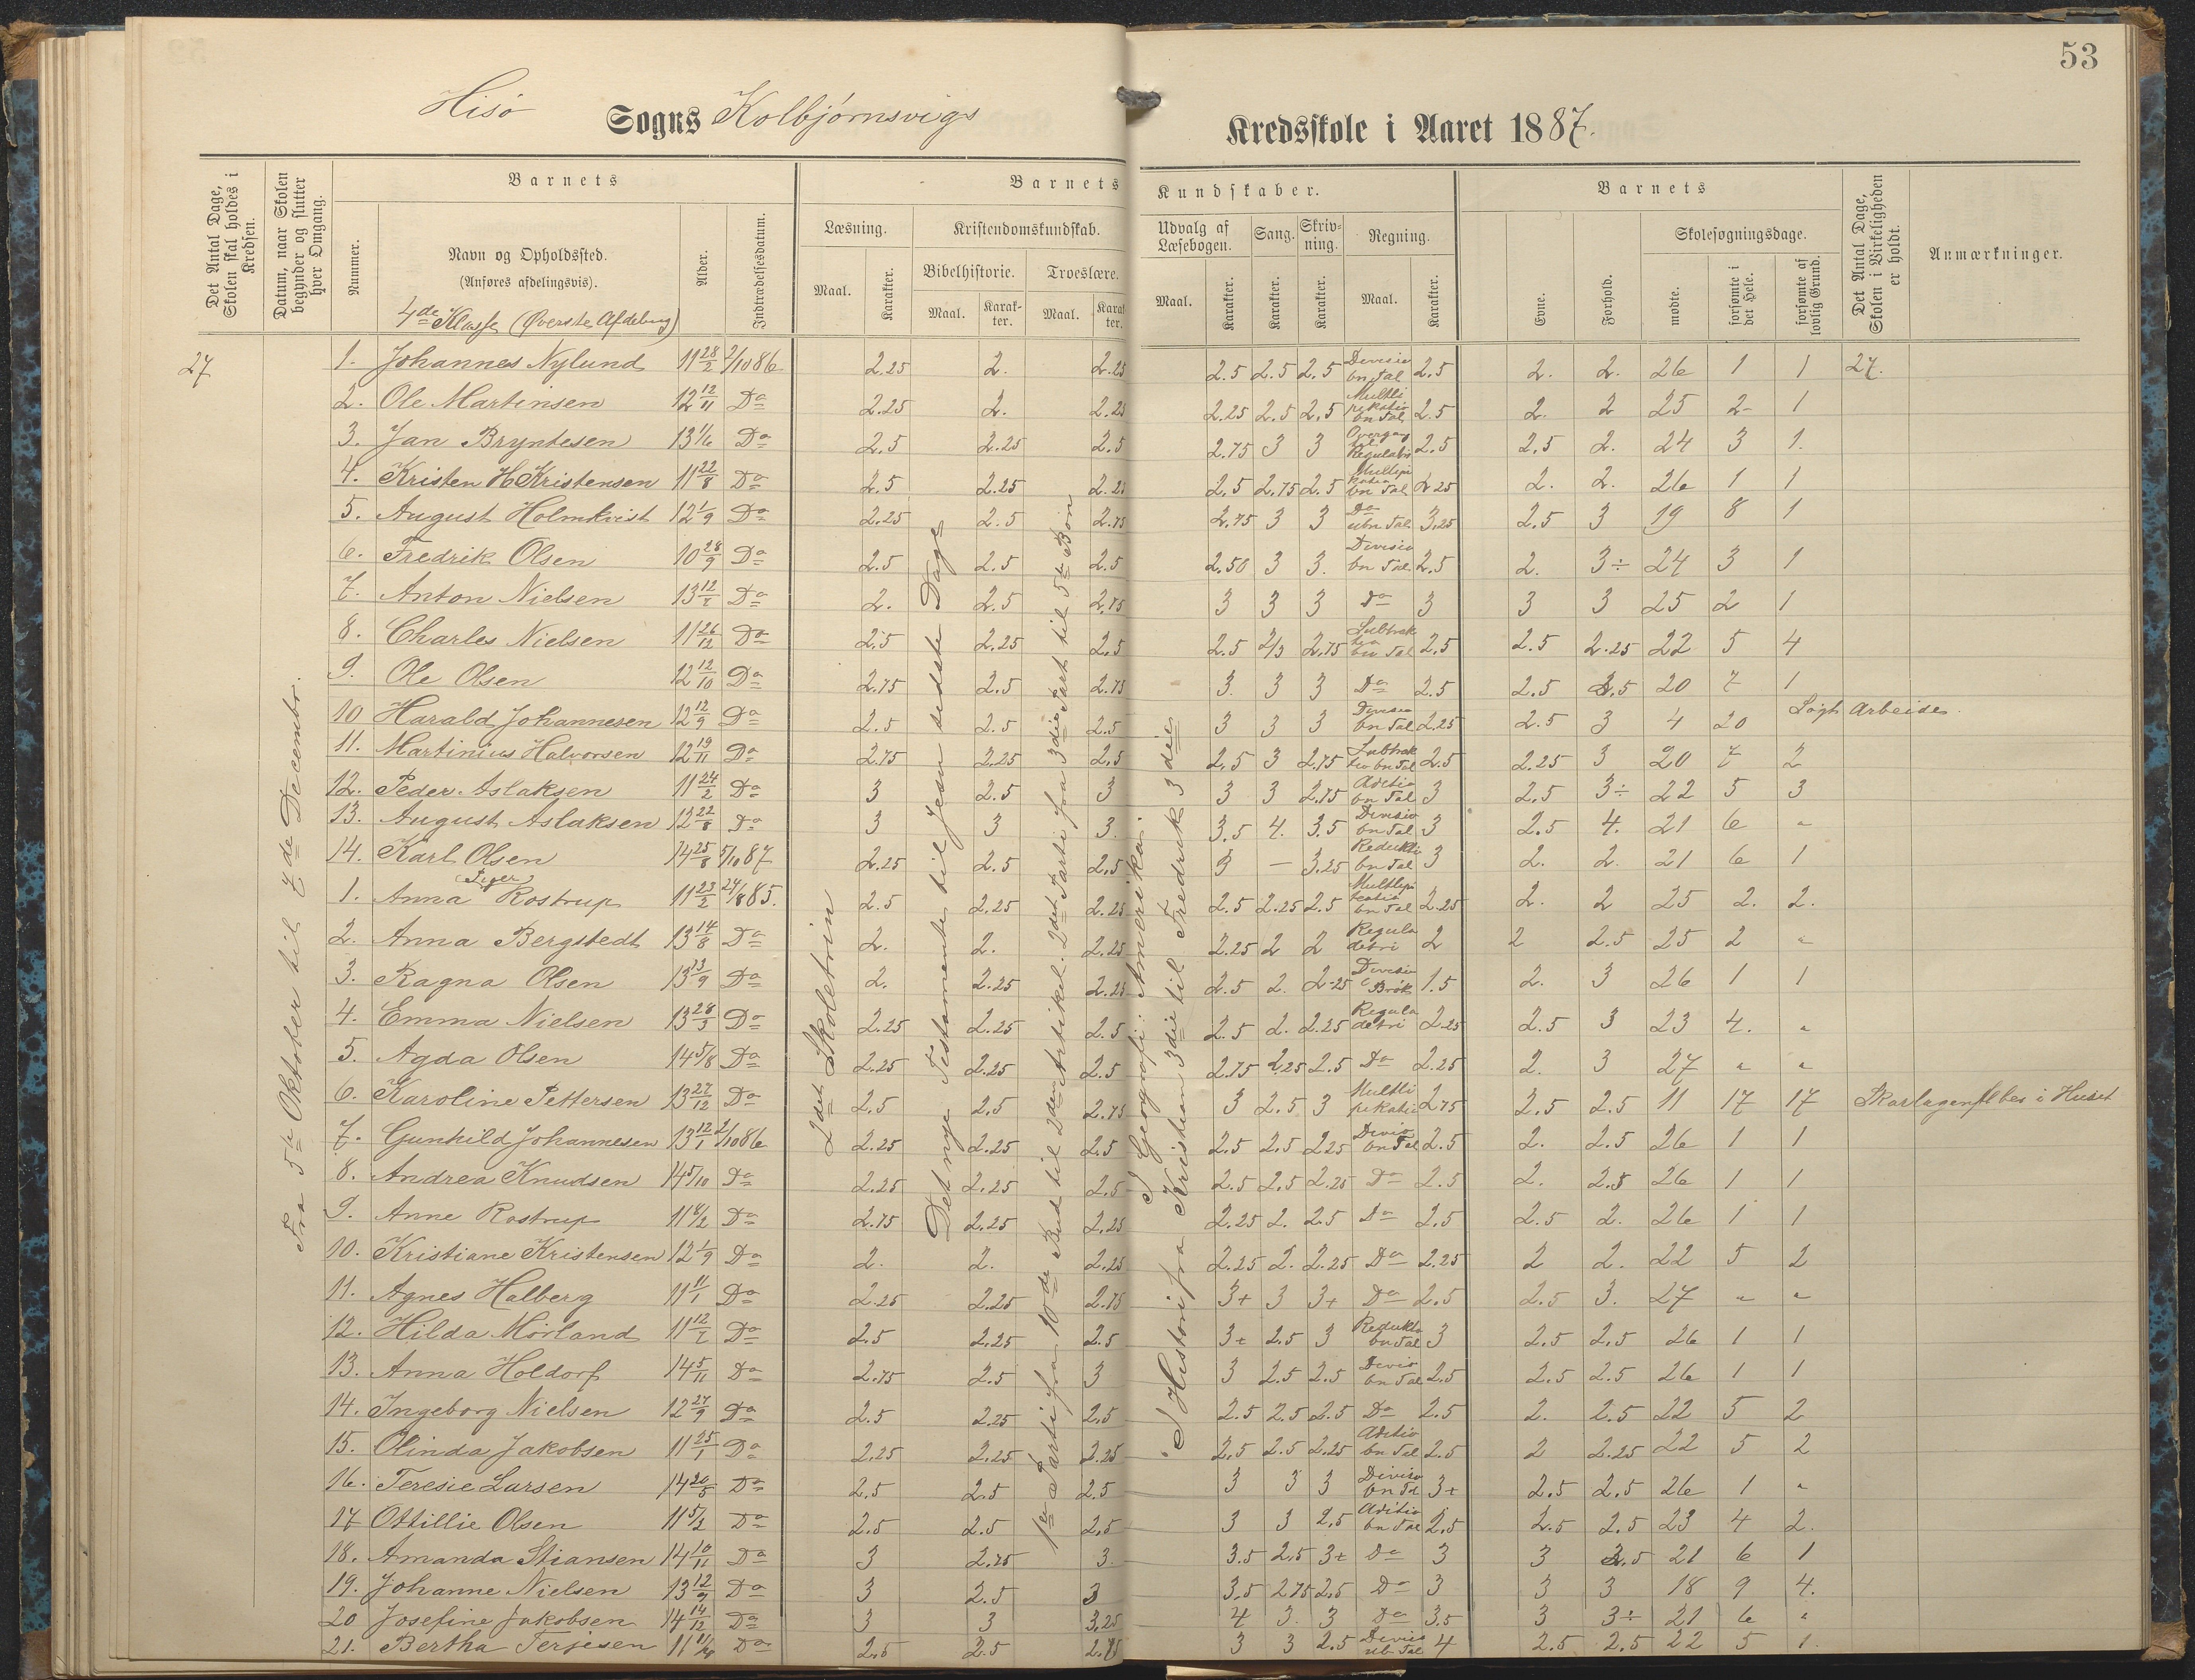 53
Hisö Sogns Kolbjørnsvigs Kredsskole i Aaret 1887.
Det Antal Dage, Skolen skal holdes i Kredsen.
Datum, naar Skolen begynder og slutter hver Omgang.
Barnets
Nummer.
Navn og Opholdssted.
(Anføres afdelingsvis).
4de Klasse (Øverste Afdeling)
Alder.
Indtrædelsesdatum.
Barnets Kundskaber.
Læsning.
Maal.
Karakter.
Kristendomskundskab.
Bibelhistorie.
Maal.
Karakter.
Troeslære.
Maal.
Karakter.
Udvalg af Læsebogen.
Maal.
Karakter.
Sang.
Karakter.
Skrivning.
Karakter.
Regning.
Maal.
Karakter.
Barnets
Evne.
Forhold.
Skolesøgningsdage.
mødte.
forsømte i det Hele.
forsømte af lovlig Grund.
Det Antal Dage, Skolen i Virkeligheden er holdt.
Anmærkninger.
27
Fra 5te Oktober til 7de Decembr.
2det Skoletrin
Det nye Testamente til Jesu sidste Dage
1ste Parti fra 10de Bud til 2den Artikel. 2det Parti fra 3die Part til 5te Bøn
I Geografi: Amerika.
I Historie fra Kristian 3die til Fredrik 3die
1. Johannes Nylund 11 28/2 2/10 86 2.25 2. 2.25 2.5 2.5 2.5 Divisio bn Tal 2.5 2. 2. 26 1 1 27.
2. Ole Martinsen 12 12/11 Do 2.25 2. 2.25 2.25 2.5 2.5 Multiplikatio bn Tal 2.5 2. 2 25 2 1
3. Jan Bryntesen 13 1/6 Do 2.5 2.25 2.5 2.75 3 3 2.5 2.5 2. 24 3 1.
4. Kristen H Kristensen 11 22/8 Do 2.5 2.25 2.25 2.5 2.75 2.5 bn Tal 2.25 2. 2. 26 1 1
5. August Holmkvist 12 1/9 Do 2.25 2.5 2.75 2.75 3 3 Do ubn Tal 3.25 2.5 3 19 8 1
6. Fredrik Olsen 10 28/9 Do 2.5 2.5 2.5 2.50 3 3. Divisio bn Tal 2.5 2. 3÷ 24 3 1
7. Anton Nielsen 13 Do 2. 2.5 2.75 3 3 3 Do 3 3 3 25 2 1
8. Charles Nielsen 11 26/12 Do 2.5 2.25 2.5 2.5 2/3 2.75 Subtraktio bn Tal 2.5 2.5 2.25 22 5 4
9. Ole Olsen 12 12/10 Do 2.75 2.5 2.75 3. 3 3 Do 2.5 2.5 3.5 20 7 1
10 Harald Johannesen 12 12/9 Do 2.5 2.5 2.5 3 3 3 Divisio bn Tal 2.25 2.5 3 4 20 Søgt Arbeide.
11. Martinius Halvorsen 12 19/11 Do 2.75 2.25 2.5 2.5 3 2.75 Subtraktio bn Tal 2.5 2.25 3 20 7 2
12. Peder Aslaksen 11 24/2 Do 3 2.5 3 3 3 2.75 Aditio bn Tal 3 2.5 3÷ 22 5 3
13. August Aslaksen 12 22/8 Do 3 3 3. 3.5 4. 3.5 Divisio bn Tal 3 2.5 4. 21 6 "
14. Karl Olsen 14 25/8 5/10 87 2.25 2.5 2.5 3 — 3.25 Reduktio bn Tal 3 2. 2. 21 6 1
Piger
1. Anna Rostrup 11 23/2 24/8 85. 2.5 2.25 2.25 2.5 2.25 2.5 bn Tal 2.25 2. 2 25 2. 2.
2. Anna Bergstedt 13 14/8 Do 2. 2. 2.25 2.25 2 2 Regula detri 2 2 2.5 25 2 "
3. Ragna Olsen 13 13/9 Do 2. 2.25 2.25 2.5 2. 2.25 Divisio Brøk 1.5 2. 3 26 1 1
4. Emma Nielsen 13 28/3 Do 2.25 2.25 2.5 2.5 2. 2.25 Regula detri 2.25 2.5 3 23 4. "
5. Agda Olsen 14 5/8 Do 2.25 2.25 2.5 2.75 2.25 2.5 Do 2.25 2. 3 27 " "
6. Karoline Pettersen 13 27/12 Do 2.5 2.5 2.75 3 2.5 3 2.75 2.5 2.5 11 17 17 Skarlagensfeber i Huset
7. Gunhild Johannesen 13 12/1 2/10 86 2.25 2.25 2.5 2.5 2.5 2.25 Divis bn Tal 2.5 2. 2.5 26 1 1
8. Andrea Knudsen 14 5/10 Do 2.25 2.25 2.5 2.5 2.5 2.25 Do 2.5 2. 2.5 26 1 1
9. Anne Rostrup 11 Do 2.75 2.25 2.25 2.25 2. 2.5 Do 2.5 2.5 2. 26 1 1
10. Kristiane Kristensen 12 1/9 Do 2. 2. 2.25 2.25 2. 2.25 Do 2.25 2 2. 22 5 2
11. Agnes Halberg 11 11/1 Do 2.25 2.25 2.75 3+ 3 3+ Do 2.5 2.5 3. 27 " "
12. Hilda Mørland 11 Do 2.5 2.25 2.5 3+ 2.5 3 Redukto bn Tal 3 2.5 2.5 26 1 1
13. Anna Holdorf 14 5/11 Do 2.75 2.5 3 3 2.5 2.5 Divis bn Tal 2.5 2.5 2.5 26 1 1
14. Ingeborg Nielsen 12 27/9 Do 2.5 2.25 2.5 2.5 2.5 2.5 Do 2.5 2. 2.5 22 5 2
15. Olinda Jakobsen 11 25/1 Do 2.25 2.25 2.25 2.5 2.5 2.25 Aditio bn Tal 2.5 2 2.25 22 5 2
16. Teresie Larsen 14 20/5 Do 2.5 2.5 2.5 3 3 3 Diviso bn Tal 3+ 2.5 2.5 26 1 "
17 Ottillie Olsen 11 5/2 Do 2.5 2.5 2.5 3 3 2.5 Aditio bn Tal 2.5 2.5 2.5 23 4 2.
18. Amanda Stiansen 14 10/11 Do 3 2.75 3. 3.5 2.5 3+ Do 3 3 3.5 21 6 1
19. Johanne Nielsen 13 12/9 Do 3 2.5 3 3.5 2.75 2.5 Do 3 3 3 18 9 4.
20 Josefine Jakobsen 14 14/12 Do 3 3 3.25 4 3. 3 Do 3.5 3 3÷ 21 6 "
21. Bertha Terjesen 11 Do 2.5 2.5 2.75 3 3 2.5 Divis ub Tal 4 2.5 2.5 22 5 1.